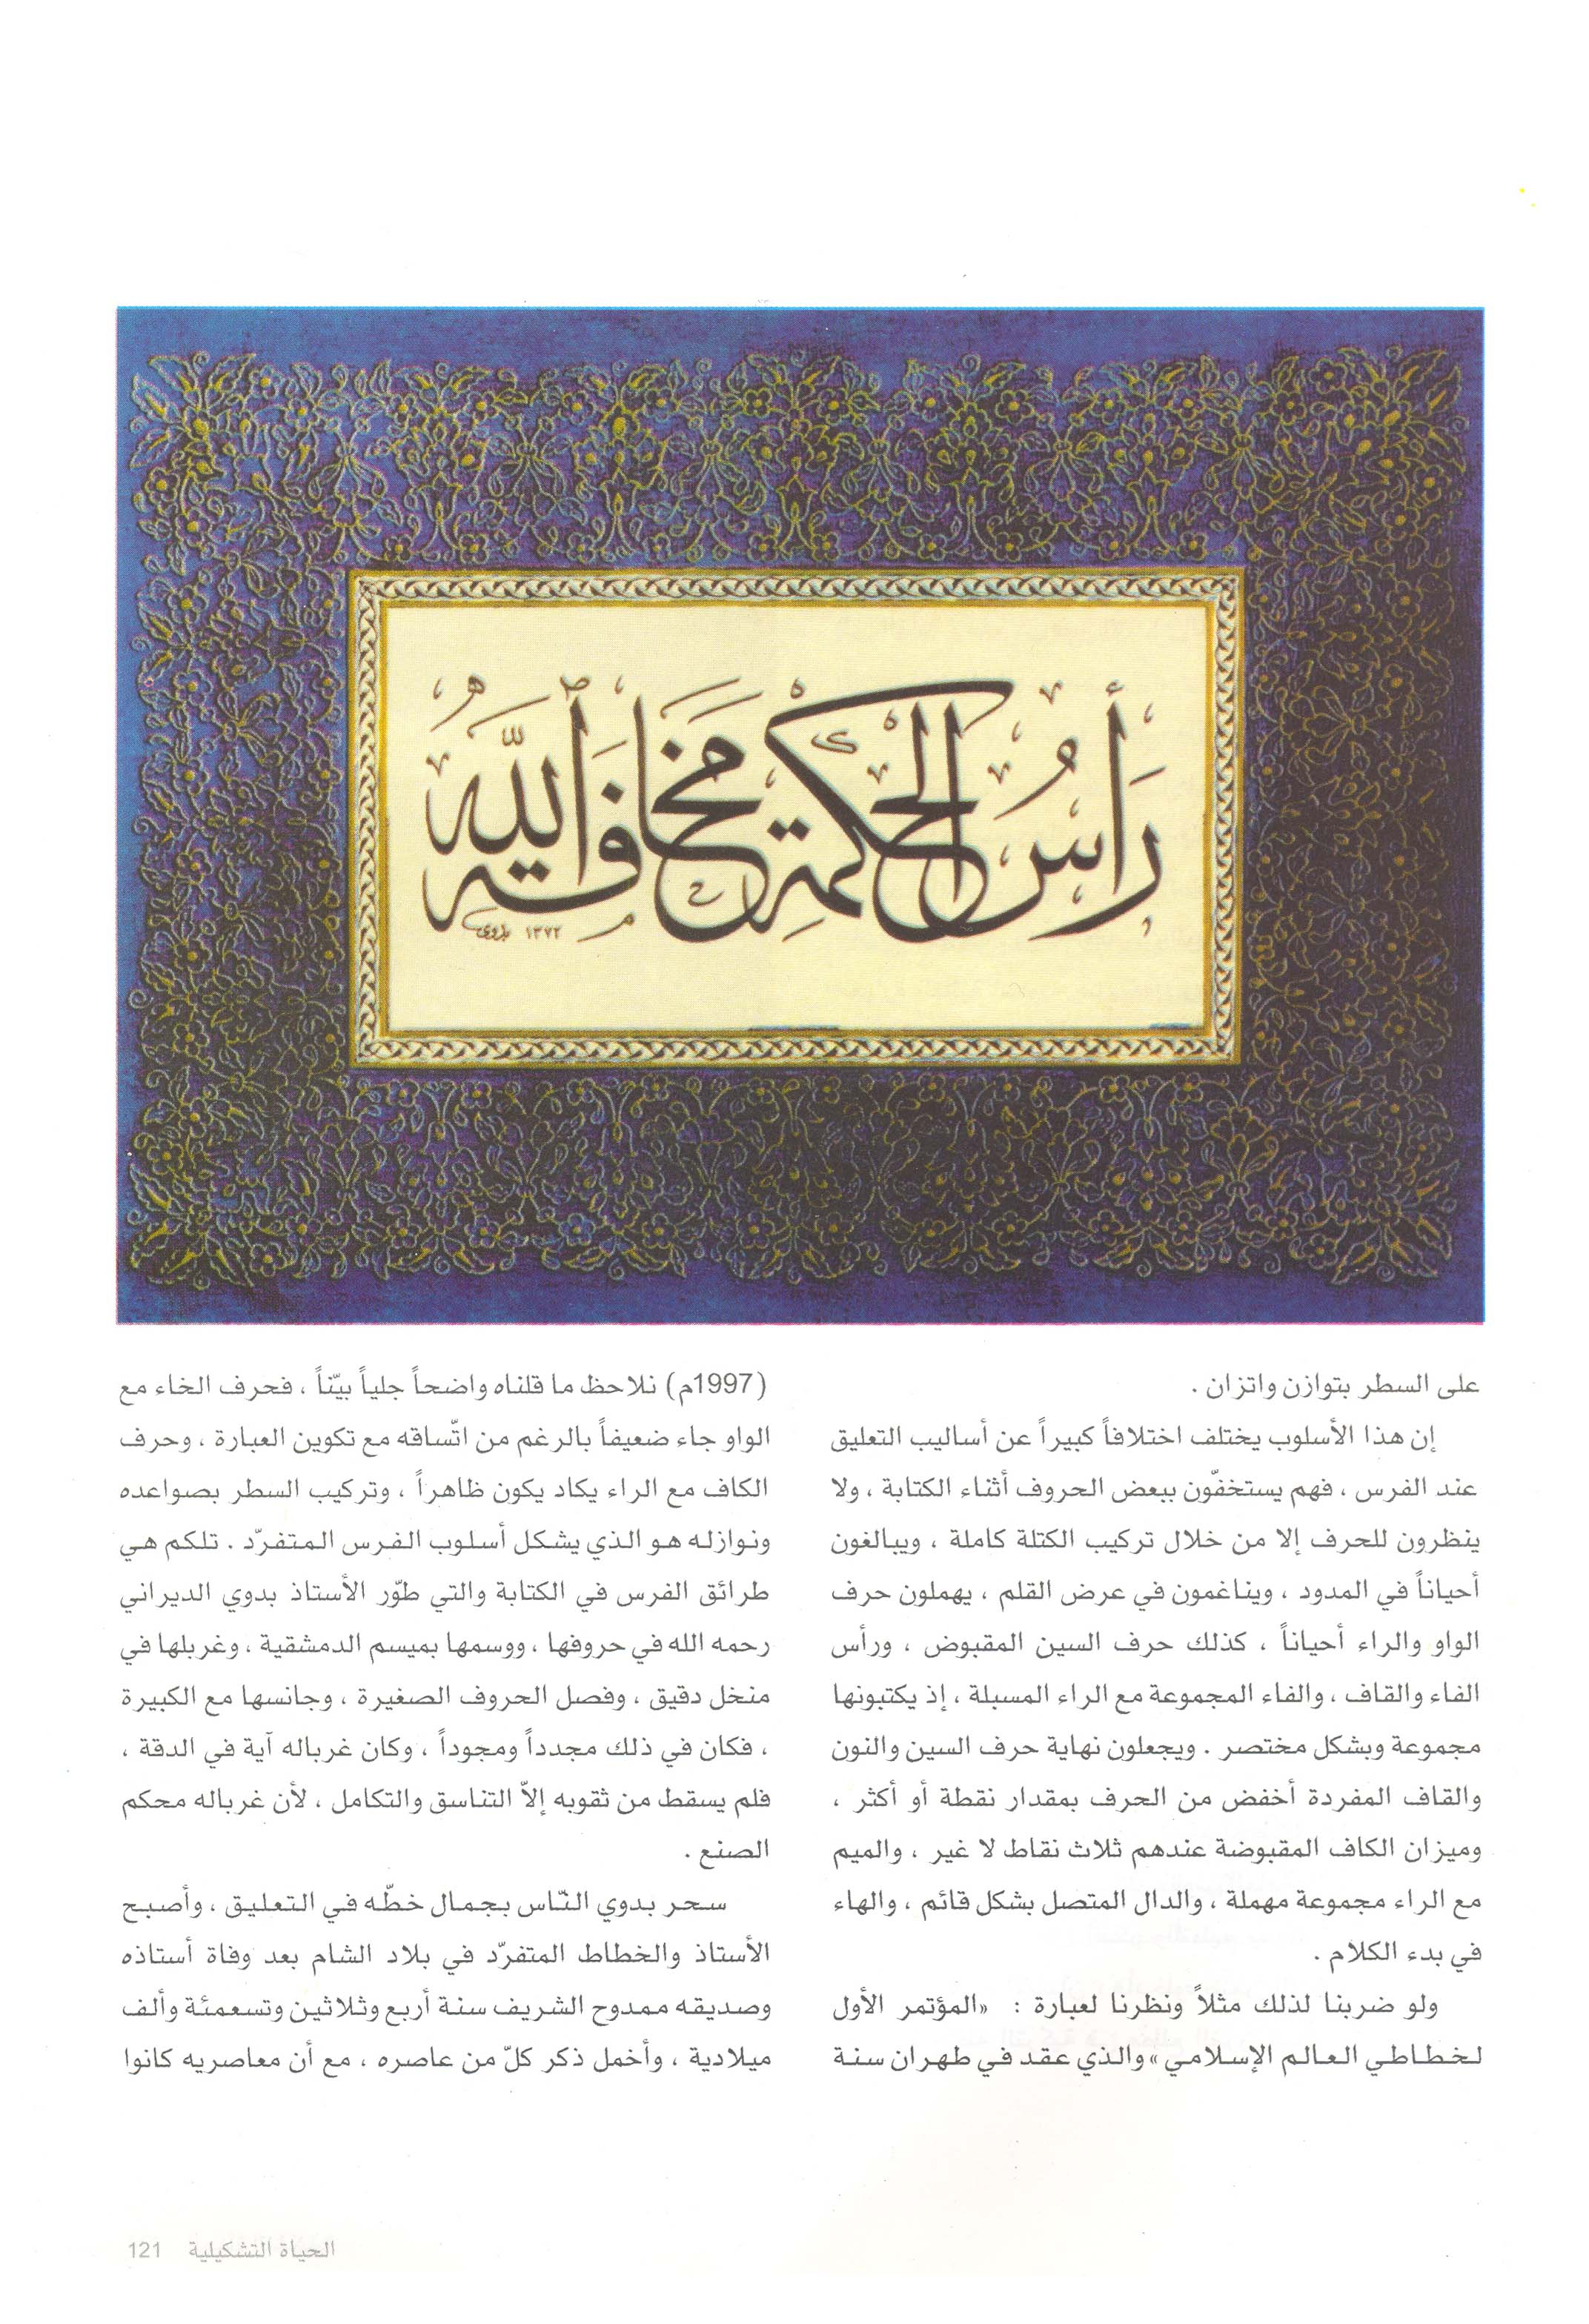 رَأْسُ الْحِكْمَةِ مَخَافَةُ ٱللَّهِ
بدوي ١٣٧٢
على السطر بتوازن واتزان .
إن هذا الأسلوب يختلف اختلافاً كبيراً عن أساليب التعليق
عند الفرس ، فهم يستخفّون ببعض الحروف أثناء الكتابة ، ولا
ينظرون للحرف إلا من خلال تركيب الكتلة كاملة ، ويبالغون
أحياناً في المدود ، ويناغمون في عرض القلم ، يهملون حرف
الواو والراء أحياناً ، كذلك حرف السين المقبوض ، ورأس
الفاء والقاف ، والفاء المجموعة مع الراء المسبلة ، إذ يكتبونها
مجموعة وبشكل مختصر . ويجعلون نهاية حرف السين والنون
والقاف المفردة أخفض من الحرف بمقدار نقطة أو أكثر ،
وميزان الكاف المقبوضة عندهم ثلاث نقاط لا غير ، والميم
مع الراء مجموعة مهملة ، والدال المتصل بشكل قائم ، والهاء
في بدء الكلام .
ولو ضربنا لذلك مثلاً ونظرنا لعبارة : «المؤتمر الأول
لخطاطي العالم الإسلامي» والذي عقد في طهران سنة
(1997م) نلاحظ ما قلناه واضحاً جلياً بيّناً ، فحرف الخاء مع
الواو جاء ضعيفاً بالرغم من اتّساقه مع تكوين العبارة ، وحرف
الكاف مع الراء يكاد يكون ظاهراً ، وتركيب السطر بصواعده
ونوازله هو الذي يشكل أسلوب الفرس المتفرّد . تلكم هي
طرائق الفرس في الكتابة والتي طوّر الأستاذ بدوي الديراني
رحمه الله في حروفها ، ووسمها بميسم الدمشقية ، وغربلها في
منخل دقيق ، وفصل الحروف الصغيرة ، وجانسها مع الكبيرة
، فكان في ذلك مجدداً ومجوداً ، وكان غرباله آية في الدقة ،
فلم يسقط من ثقوبه إلاّ التناسق والتكامل ، لأن غرباله محكم
الصنع .
سحر بدوي النّاس بجمال خطّه في التعليق ، وأصبح
الأستاذ والخطاط المتفرّد في بلاد الشام بعد وفاة أستاذه
وصديقه ممدوح الشريف سنة أربع وثلاثين وتسعمئة وألف
ميلادية ، وأخمل ذكر كلّ من عاصره ، مع أن معاصريه كانوا
الحياة التشكيلية 121